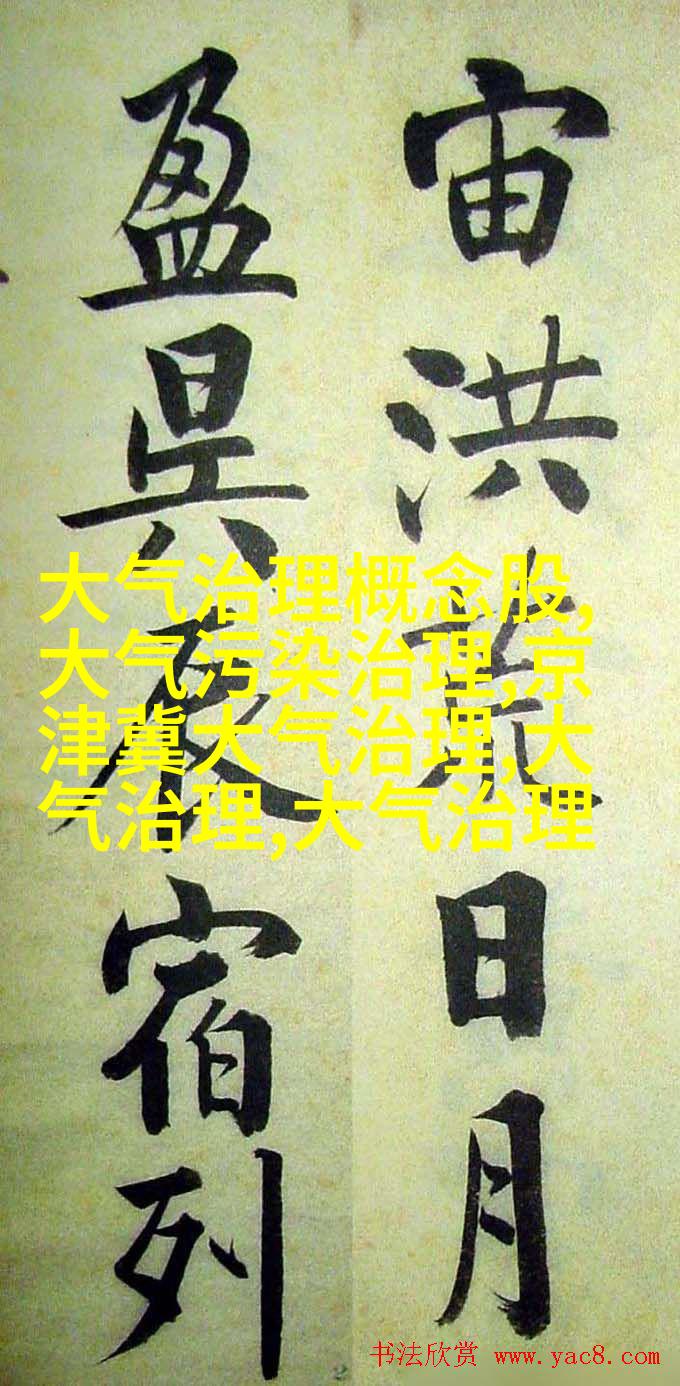 宙洪荒日月
盈昃辰宿列
大气治理概念股,
大气污染治理,京
津冀大气治理,大
气治理,大气治理
书法欣赏 www.yac8.com